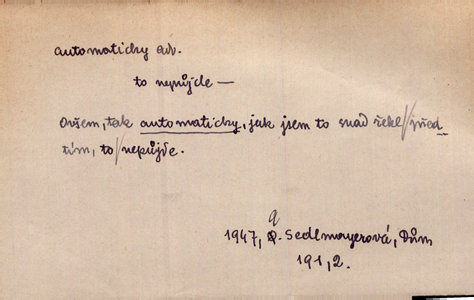 automaticky adv.
to nepůjde —
Ovšem, tak automaticky, jak jsem to snad řekl/před-
tím, to/nepůjde.
q
1947, Q. Sedlmayerová, Dům
191, 2.